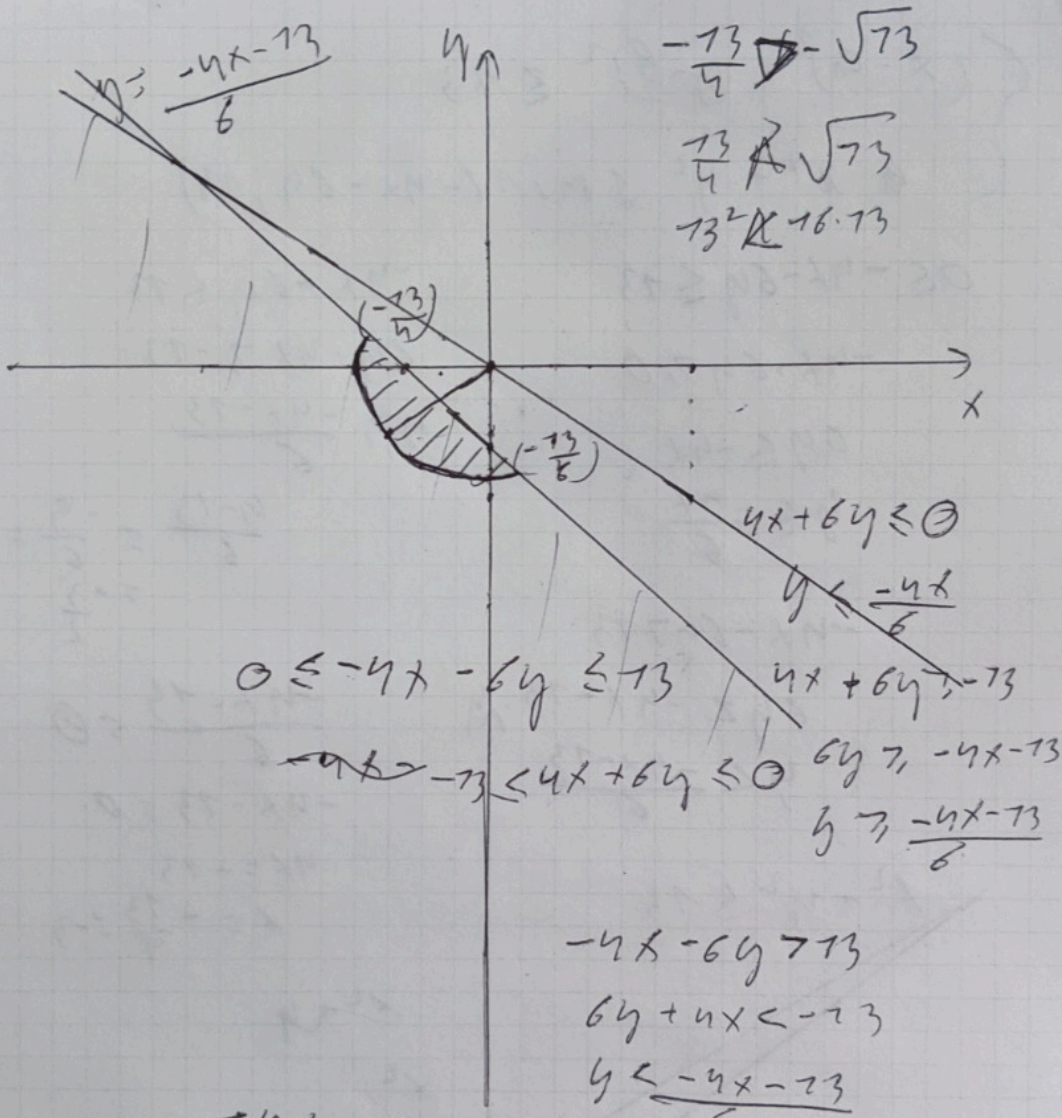 y = \frac{-4x-13}{6}
y
-\frac{13}{4} > -\sqrt{13}
\frac{13}{4} < \sqrt{13}
13² < 16·13
(-\frac{13}{4})
x
(-\frac{13}{6})
4x+6y ≤ 0
y ≤ \frac{-4x}{6}
0 ≤ -4x - 6y ≤ 13
4x + 6y ≥ -13
-13 ≤ 4x + 6y ≤ 0
6y ≥ -4x-13
y ≥ \frac{-4x-13}{6}
-4x - 6y > 13
6y + 4x < -13
y < \frac{-4x-13}{6}